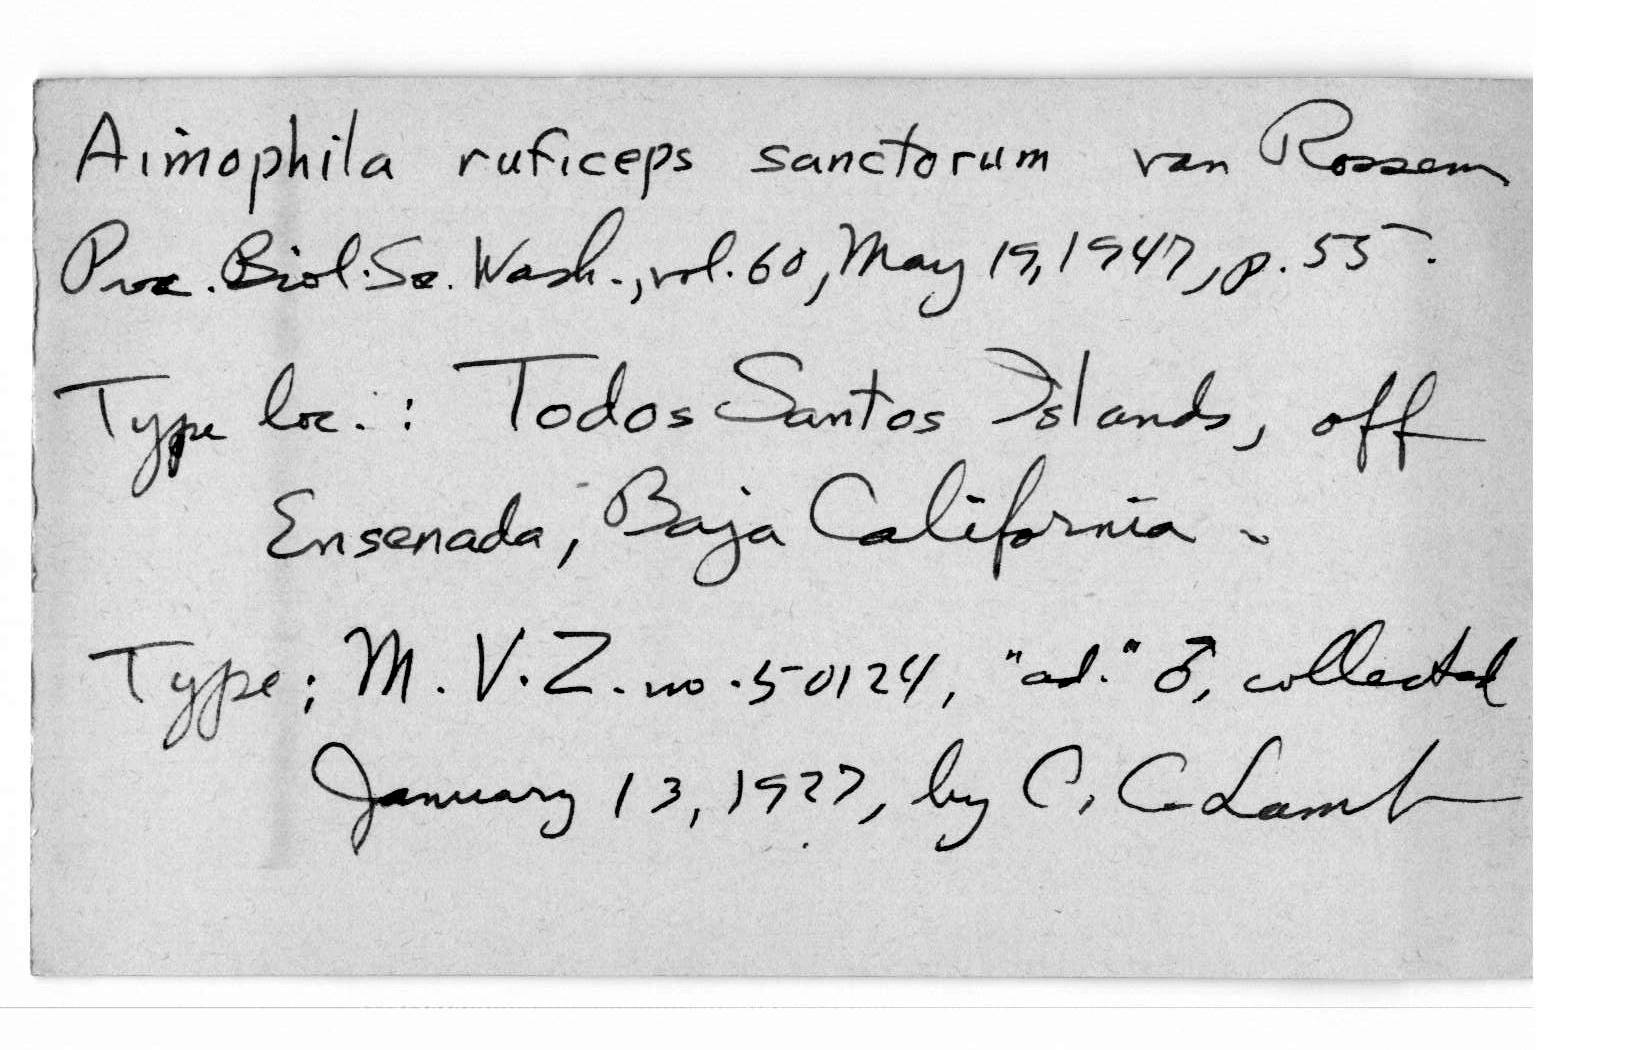 Aimophila ruficeps sanctorum van Rossem
Proc. Biol. Soc. Wash., vol. 60, May 19, 1947, p. 55.
Type loc. : Todos Santos Islands, off
Ensenada, Baja California.
Type: M.V.Z. no. 50124, "ad." ♂, collected
January 13, 1927, by C. C. Lamb